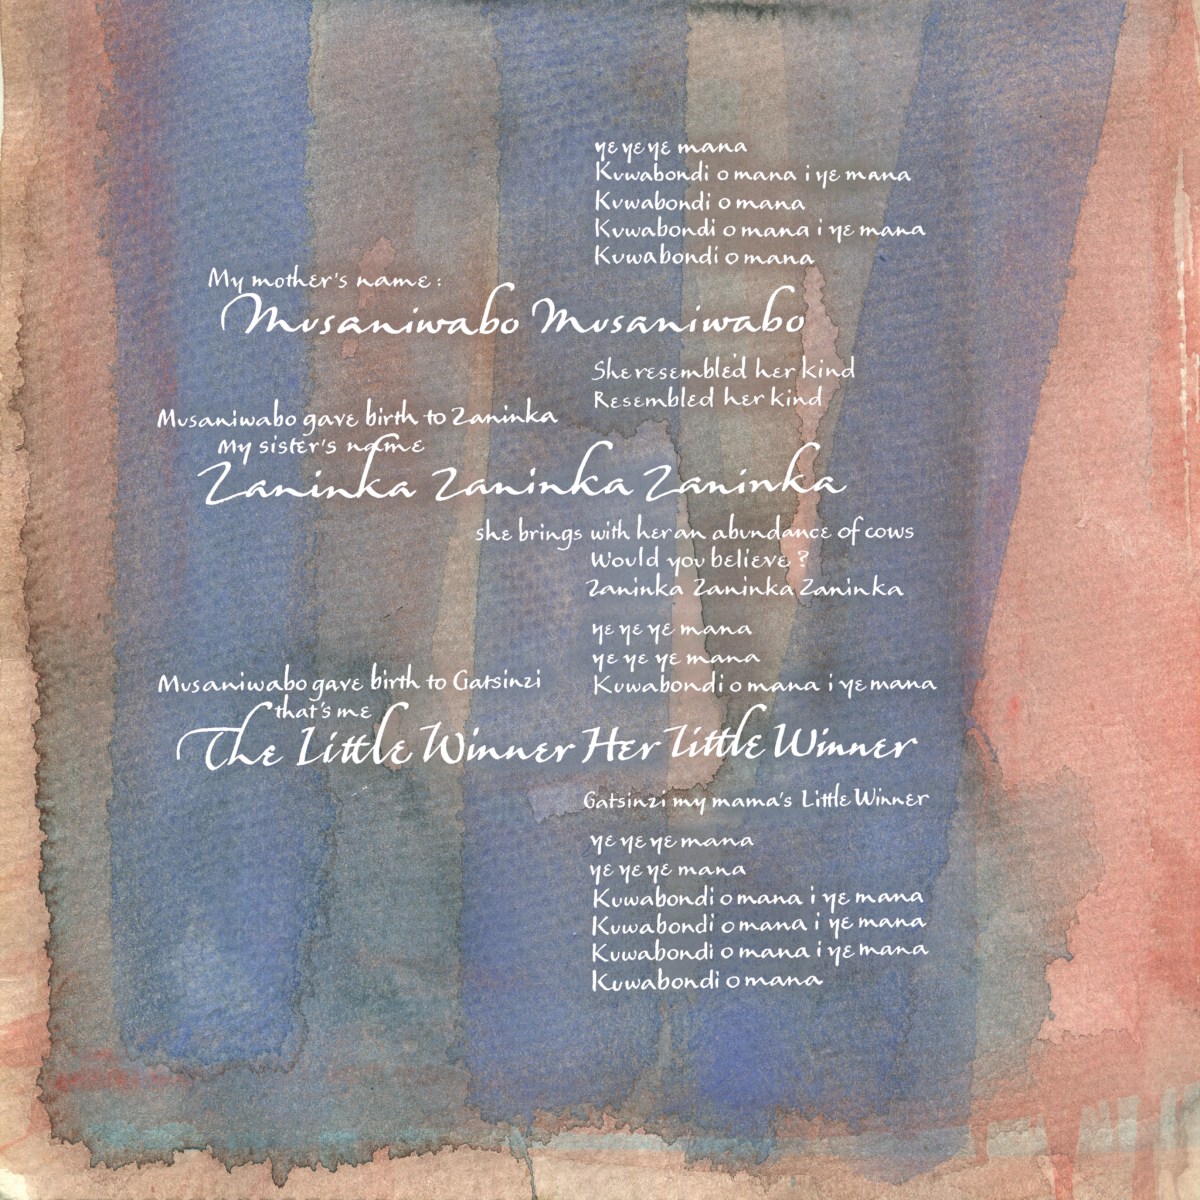 ye ye ye mana
Kuwabondi o mana i ye mana
Kuwabondi o mana
Kuwabondi o mana i ye mana
Kuwabondi o mana
My mother's name :
Musaniwabo Musaniwabo
She resembled her kind
Resembled her kind
Musaniwabo gave birth to Zaninka
My sister's name
Zaninka Zaninka Zaninka
she brings with her an abundance of cows
Would you believe ?
Zaninka Zaninka Zaninka
ye ye ye mana
ye ye ye mana
Kuwabondi o mana i ye mana
Musaniwabo gave birth to Gatsinzi
that's me
The Little Winner Her Little Winner
Gatsinzi my mama's Little Winner
ye ye ye mana
ye ye ye mana
Kuwabondi o mana i ye mana
Kuwabondi o mana i ye mana
Kuwabondi o mana i ye mana
Kuwabondi o mana